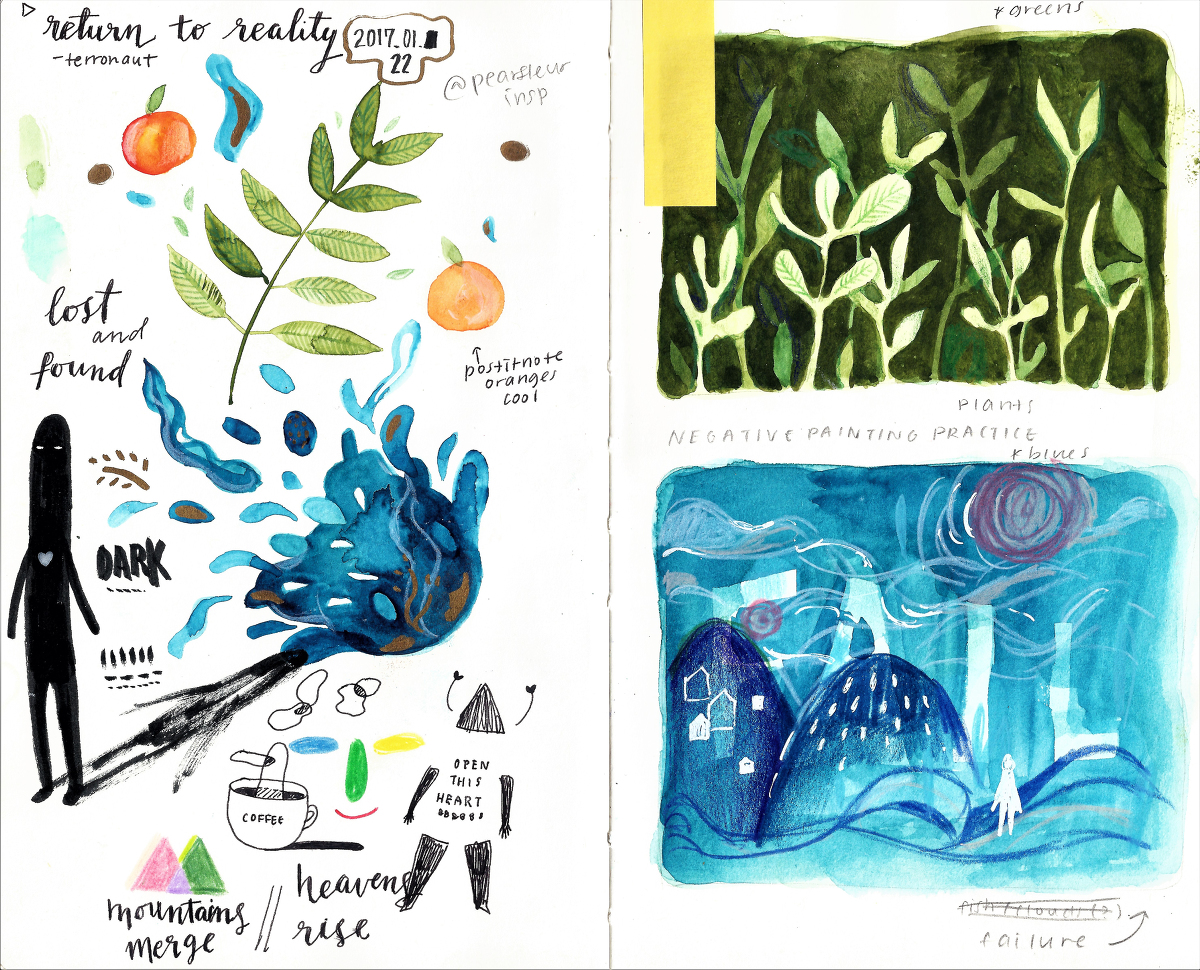 return to reality
-terronaut
2017.01.
22
@pearsfleur
insp
lost
and
found
postitnote
oranges
cool
DARK
COFFEE
OPEN
THIS
HEART
mountains
merge
//
heavens
rise
*greens
plants
NEGATIVE PAINTING PRACTICE
*blues
fish/clouds(?)
failure